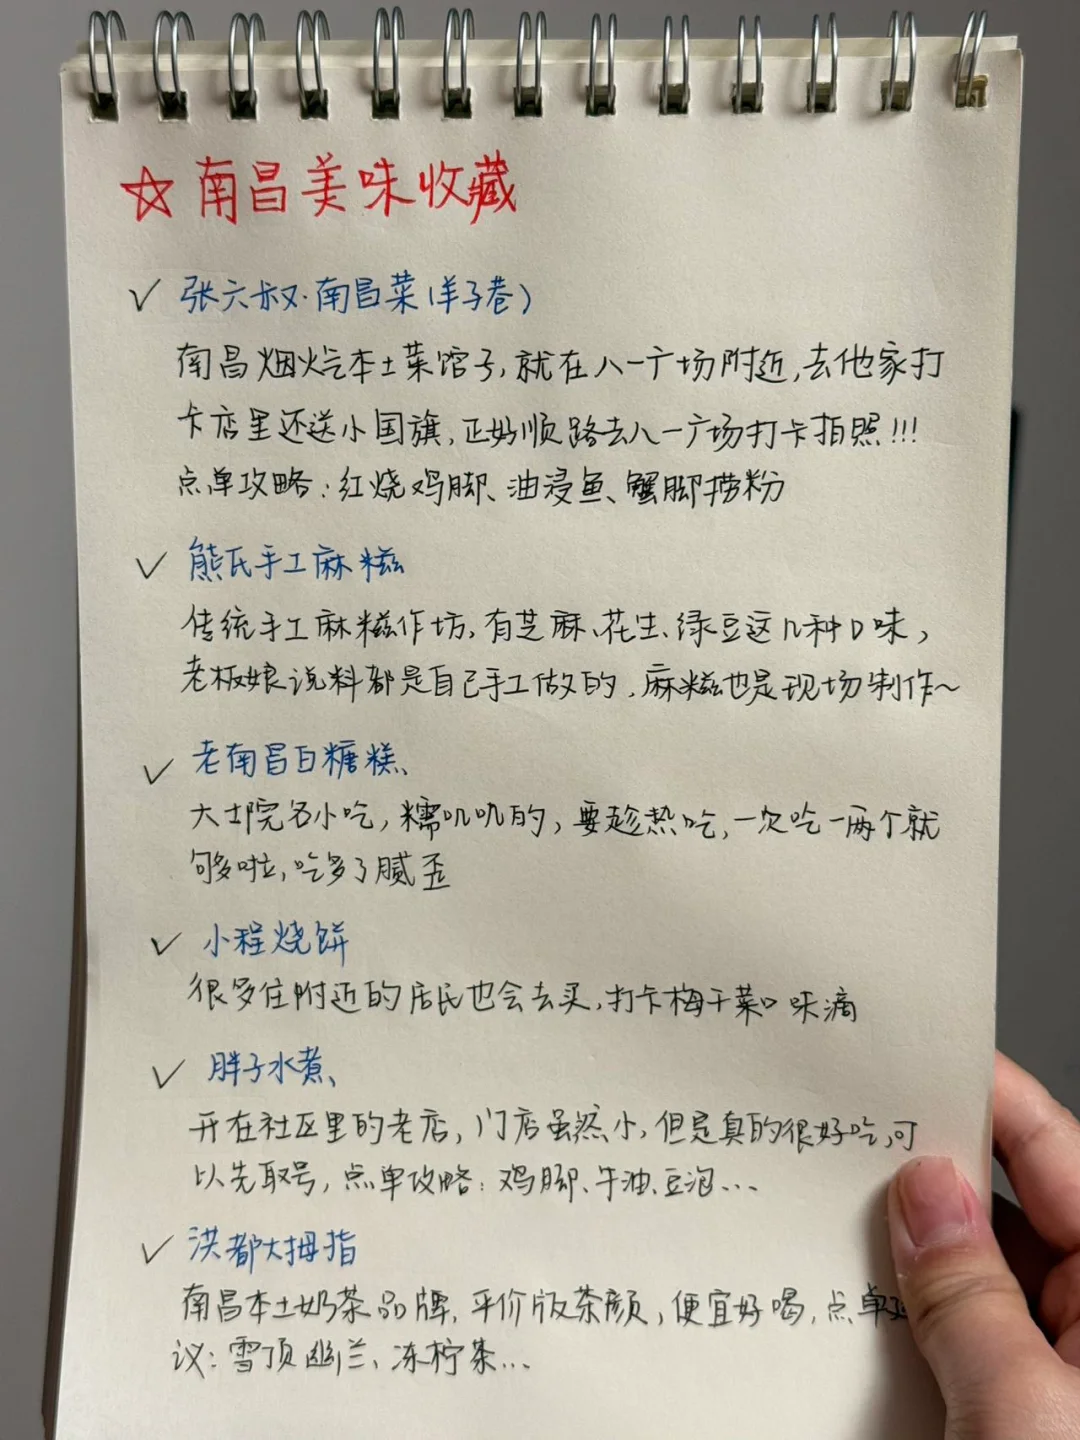 ☆南昌美味收藏
✓ 张六叔·南昌菜(羊子巷)
南昌烟火气本土菜馆子,就在八一广场附近,去他家打
卡店里还送小国旗,正好顺路去八一广场打卡拍照!!!
点单攻略:红烧鸡脚、油浸鱼、蟹脚捞粉
✓ 熊氏手工麻糍
传统手工麻糍作坊,有芝麻、花生、绿豆这几种口味,
老板娘说料都是自己手工做的,麻糍也是现场制作~
✓ 老南昌白糖糕、
大士院名小吃,糯叽叽的,要趁热吃,一次吃一两个就
够啦,吃多了腻歪
✓ 小程烧饼
很多住附近的居民也会去买,打卡梅干菜口味滴
✓ 胖子水煮、
开在社区里的老店,门店虽然小,但是真的很好吃,可
以先取号,点单攻略:鸡脚、牛油、豆泡...
✓ 洪都大拇指
南昌本土奶茶品牌,平价版茶颜,便宜好喝,点单建
议:雪顶幽兰、冻柠茶...